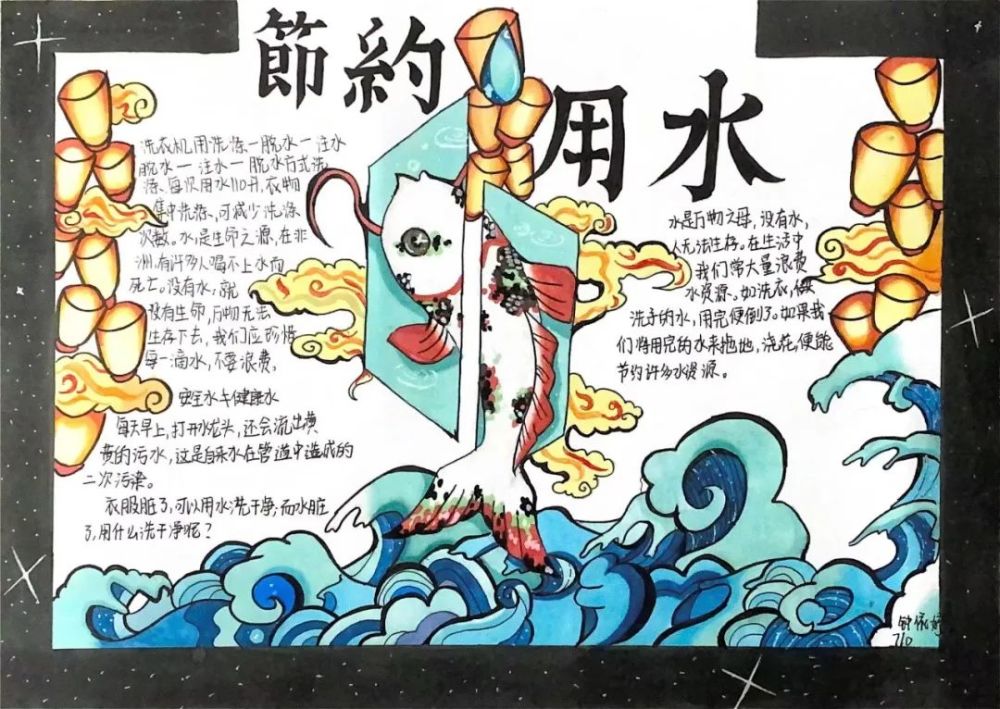 節約
用水
洗衣机用洗涤一脱水一注水
脱水一注水一脱水方式洗
涤、每次用水110升,衣物
集中洗涤,可减少洗涤
次数。水是生命之源,在非
洲,有许多人喝不上水而
死亡。没有水,就
没有生命,万物无法
生存下去,我们应珍惜
每一滴水,不要浪费,
安全水≠健康水
每天早上,打开水龙头,还会流出黄
黄的污水,这是自来水在管道中造成的
二次污染。
衣服脏了,可以用水洗干净,而水脏
了,用什么洗干净呢?
水是万物之母,没有水,
人无法生存。在生活中
我们常大量浪费
水资源。如洗衣、
洗手的水,用完便倒了。如果我
们将用完的水来拖地,浇花,便能
节约许多水资源。
钟依婷
710